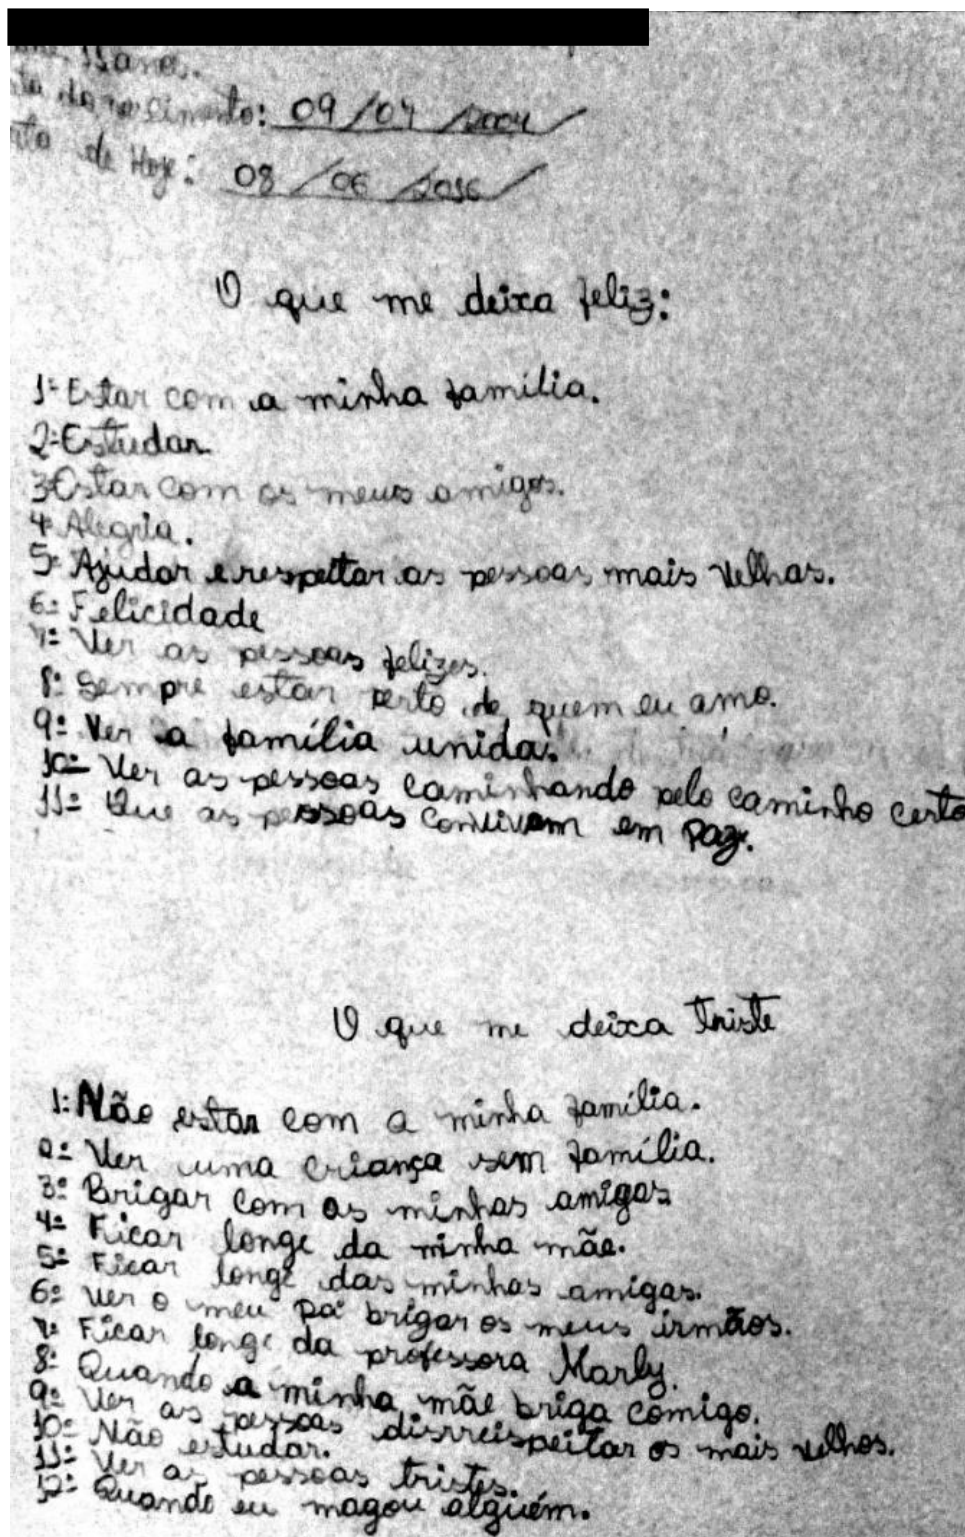 11 anos.
ta da nascimento: 09/04/2004
ata de Hoje: 08/06/2016
O que me deixa feliz:
1- Estar com a minha família.
2- Estudar
3- Estar com os meus amigos.
4- Alegria.
5- Ajudar e respeitar as pessoas mais velhas.
6- Felicidade
7- Ver as pessoas felizes.
8- Sempre estar perto de quem eu amo.
9- Ver a família unida.
10- Ver as pessoas caminhando pelo caminho certo
11- Que as pessoas convivam em paz.
O que me deixa triste
1- Não estar com a minha família.
2- Ver uma criança sem família.
3- Brigar com as minhas amigas
4- Ficar longe da minha mãe.
5- Ficar longe das minhas amigas.
6- Ver o meu pai brigar os meus irmãos.
7- Ficar longe da professora Marly.
8- Quando a minha mãe briga comigo.
9- Ver as pessoas disrreispeitar os mais velhos.
10- Não estudar.
11- Ver as pessoas tristes.
12- Quando eu magou alguém.